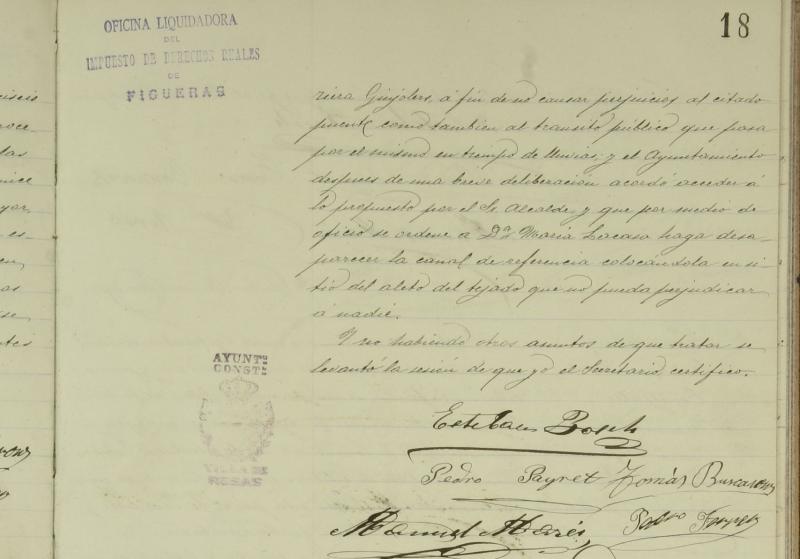 18
OFICINA LIQUIDADORA
DEL
IMPUESTO DE DERECHOS REALES
DE
FIGUERAS
riera Ginjolers, á fin de no causar perjuicios al citado
puente como tambien al tránsito público que pasa
por el mismo en tiempo de lluvias; y el Ayuntamiento
despues de una breve deliberación acordó acceder á
lo propuesto por el Sr. Alcalde y que por medio de
oficio se ordene a Dª Maria Lacasa haga desa-
parecer la canal de referencia colocándola en si-
tio del alero del tejado que no pueda perjudicar
á nadie.
Y no habiendo otros asuntos de que tratar se
levantó la sesión de que yo el Secretario, certifico.
AYUNTº
CONSTL
VILLA DE
ROSAS
Esteban Bosch
Pedro Payret Tomás Buscarons
Manuel Marés Pedro